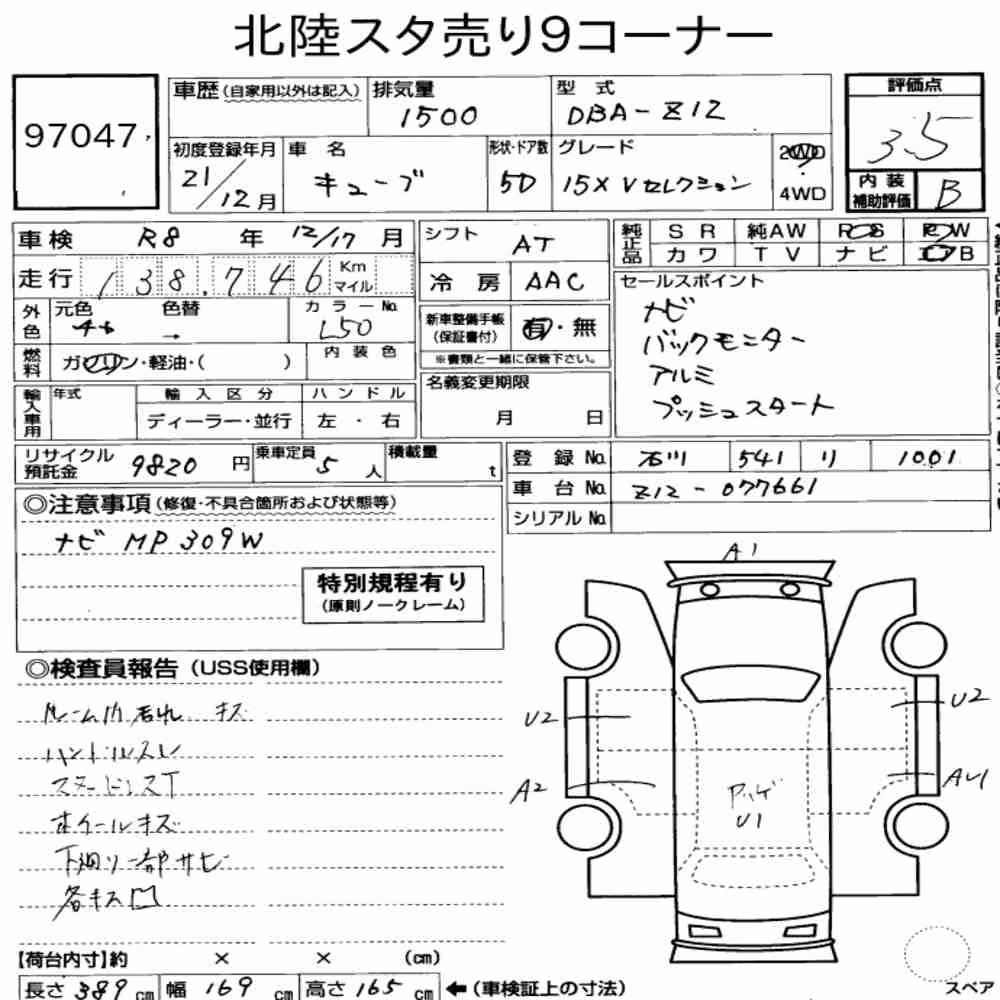 北陸スタ売り9コーナー
97047
車歴(自家用以外は記入) 排気量 1500 型式 DBA-Z12
評価点 3.5
初度登録年月 21/12月 車名 キューブ 形状・ドア数 5D グレード 15X Vセレクション 2WD 4WD
内装補助評価 B
車検 R8年 12/17月
走行 138,746 Km マイル
外色 元色 色替 → カラーNo. L50
燃料 ガソリン・軽油・( ) 内装色
輸入車用 年式 輸入区分 ディーラー・並行 ハンドル 左・右
シフト AT
冷房 AAC
新車整備手帳(保証書付) 有・無
※書類と一緒に保管下さい。
名義変更期限 月 日
純正品 SR 純AW PS PW
カワ TV ナビ エアB
セールスポイント
ナビ
バックモニター
アルミ
プッシュスタート
リサイクル預託金 9820円 乗車定員 5人 積載量 t
登録No. 石川 541 リ 1001
車台No. Z12-077661
シリアルNo.
◎注意事項(修復・不具合箇所および状態等)
ナビ MP309W
特別規程有り
(原則ノークレーム)
◎検査員報告(USS使用欄)
ルーム内汚れ キズ
ハンドルスレ
ホイールキズ
下廻り一部サビ
各キズ凹
A1
U2
U2
A2
U1
【荷台内寸】約 × × (cm)
長さ 389cm 幅 169cm 高さ 165cm ←(車検証上の寸法)
スペア